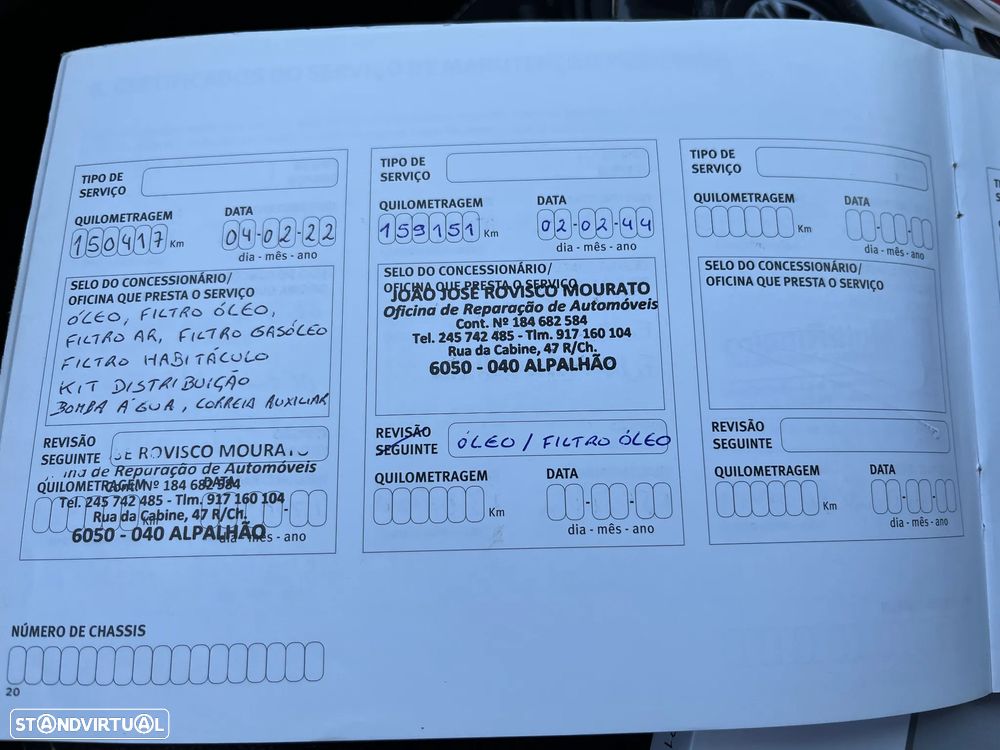 TIPO DE
SERVIÇO
QUILOMETRAGEM
DATA
150417 Km
04-02-22
dia - mês - ano
SELO DO CONCESSIONÁRIO/
OFICINA QUE PRESTA O SERVIÇO
ÓLEO, FILTRO ÓLEO,
FILTRO AR, FILTRO GASÓLEO
FILTRO HABITÁCULO
KIT DISTRIBUIÇÃO
BOMBA ÁGUA, CORREIA AUXILIAR
REVISÃO
SEGUINTE
ROVISCO MOURATO
de Reparação de Automóveis
QUILOMETRAGEM
DATA
Cont. Nº 184 682 584
Tel. 245 742 485 - Tlm. 917 160 104
Rua da Cabine, 47 R/Ch.
Km
6050 - 040 ALPALHÃO
dia - mês - ano
TIPO DE
SERVIÇO
QUILOMETRAGEM
DATA
159151 Km
02-02-44
dia - mês - ano
SELO DO CONCESSIONÁRIO/
OFICINA QUE PRESTA O SERVIÇO
JOÃO JOSÉ ROVISCO MOURATO
Oficina de Reparação de Automóveis
Cont. Nº 184 682 584
Tel. 245 742 485 - Tlm. 917 160 104
Rua da Cabine, 47 R/Ch.
6050 - 040 ALPALHÃO
REVISÃO
SEGUINTE
ÓLEO / FILTRO ÓLEO
QUILOMETRAGEM
DATA
Km
dia - mês - ano
TIPO DE
SERVIÇO
QUILOMETRAGEM
DATA
Km
dia - mês - ano
SELO DO CONCESSIONÁRIO/
OFICINA QUE PRESTA O SERVIÇO
REVISÃO
SEGUINTE
QUILOMETRAGEM
DATA
Km
dia - mês - ano
NÚMERO DE CHASSIS
20
STANDVIRTUAL